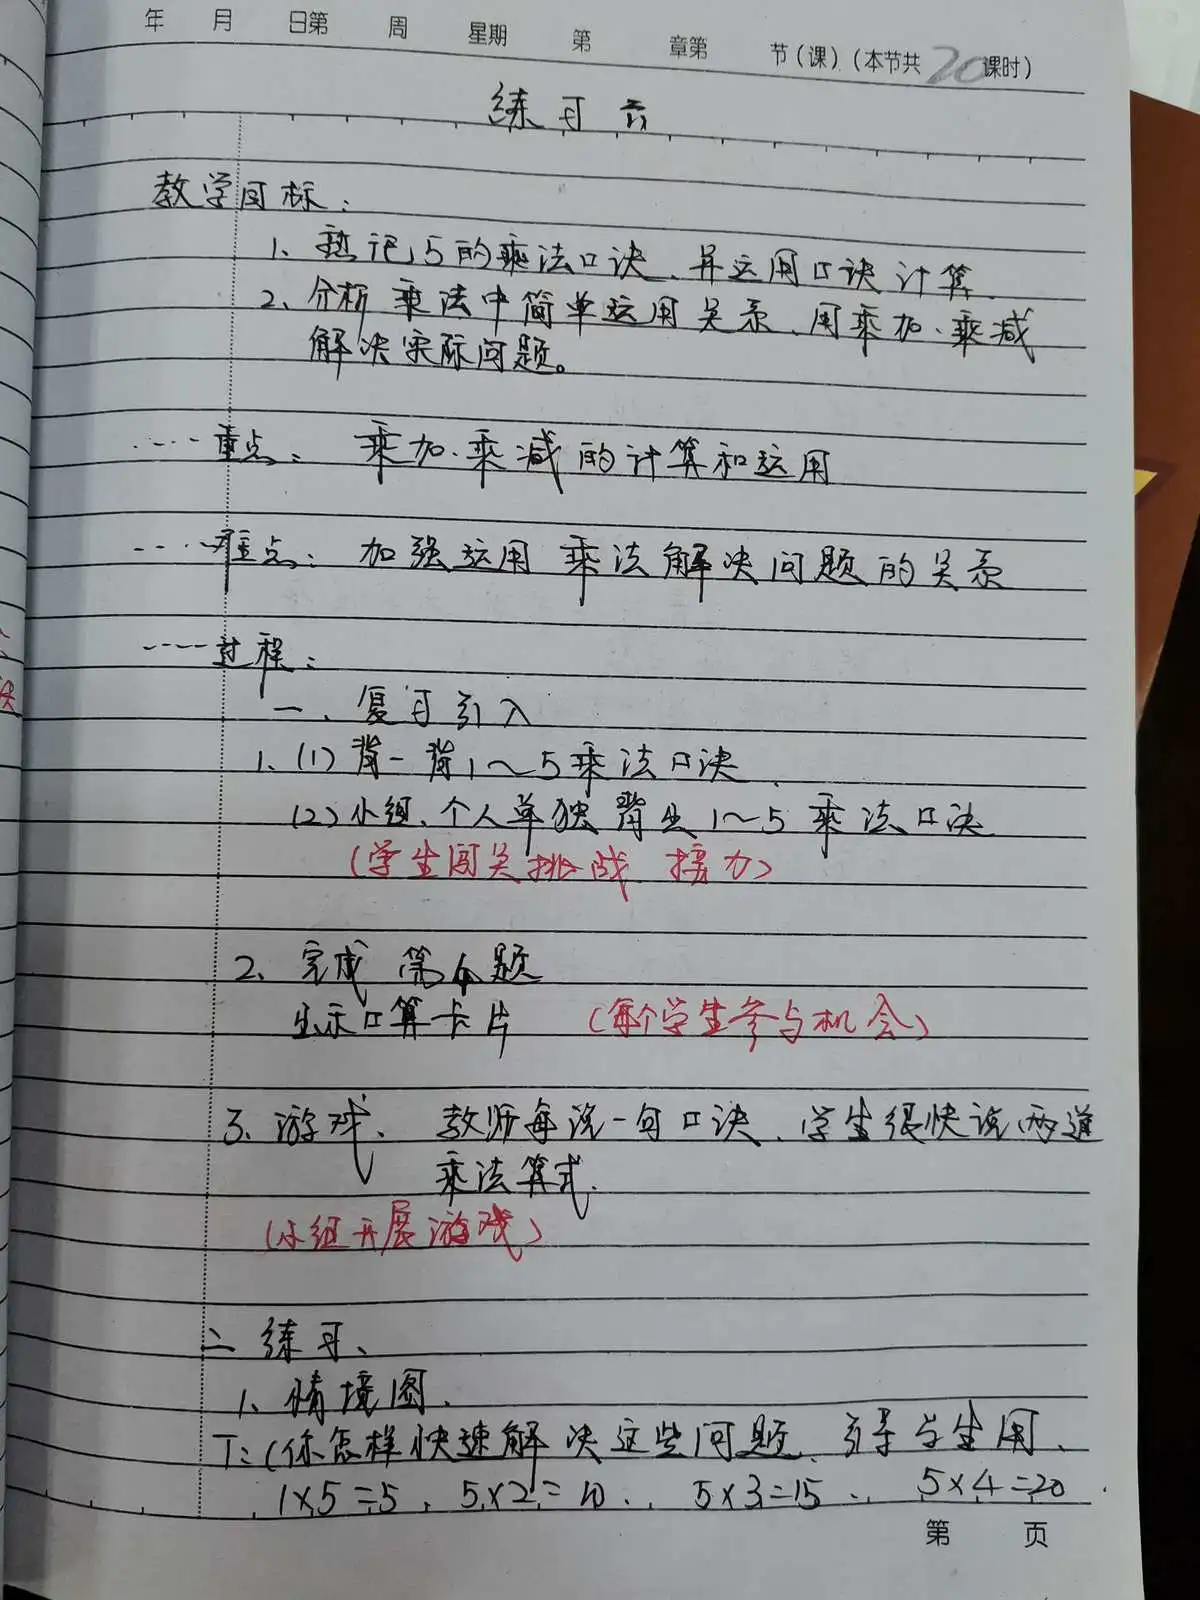 年 月 日第 周 星期 第 章第 节(课)(本节共20课时)
练习六
教学目标:
1、熟记5的乘法口诀、并运用口诀计算.
2、分析乘法中简单运用关系、用乘加、乘减
解决实际问题。
····重点: 乘加、乘减的计算和运用
····难点: 加强运用乘法解决问题的关系
····过程:
一、复习引入
1、(1)背一背1~5乘法口诀
(2)小组、个人单独背出1~5乘法口诀
(学生闯关挑战 接力)
2、完成第4题
出示口算卡片 (每个学生参与机会)
3、游戏、教师每说一句口诀、学生很快说两道
乘法算式.
(小组开展游戏)
二练习、
1、情境图.
T:(你怎样快速解决这些问题、引导学生用、
1×5=5、5×2=10、5×3=15、5×4=20
第 页